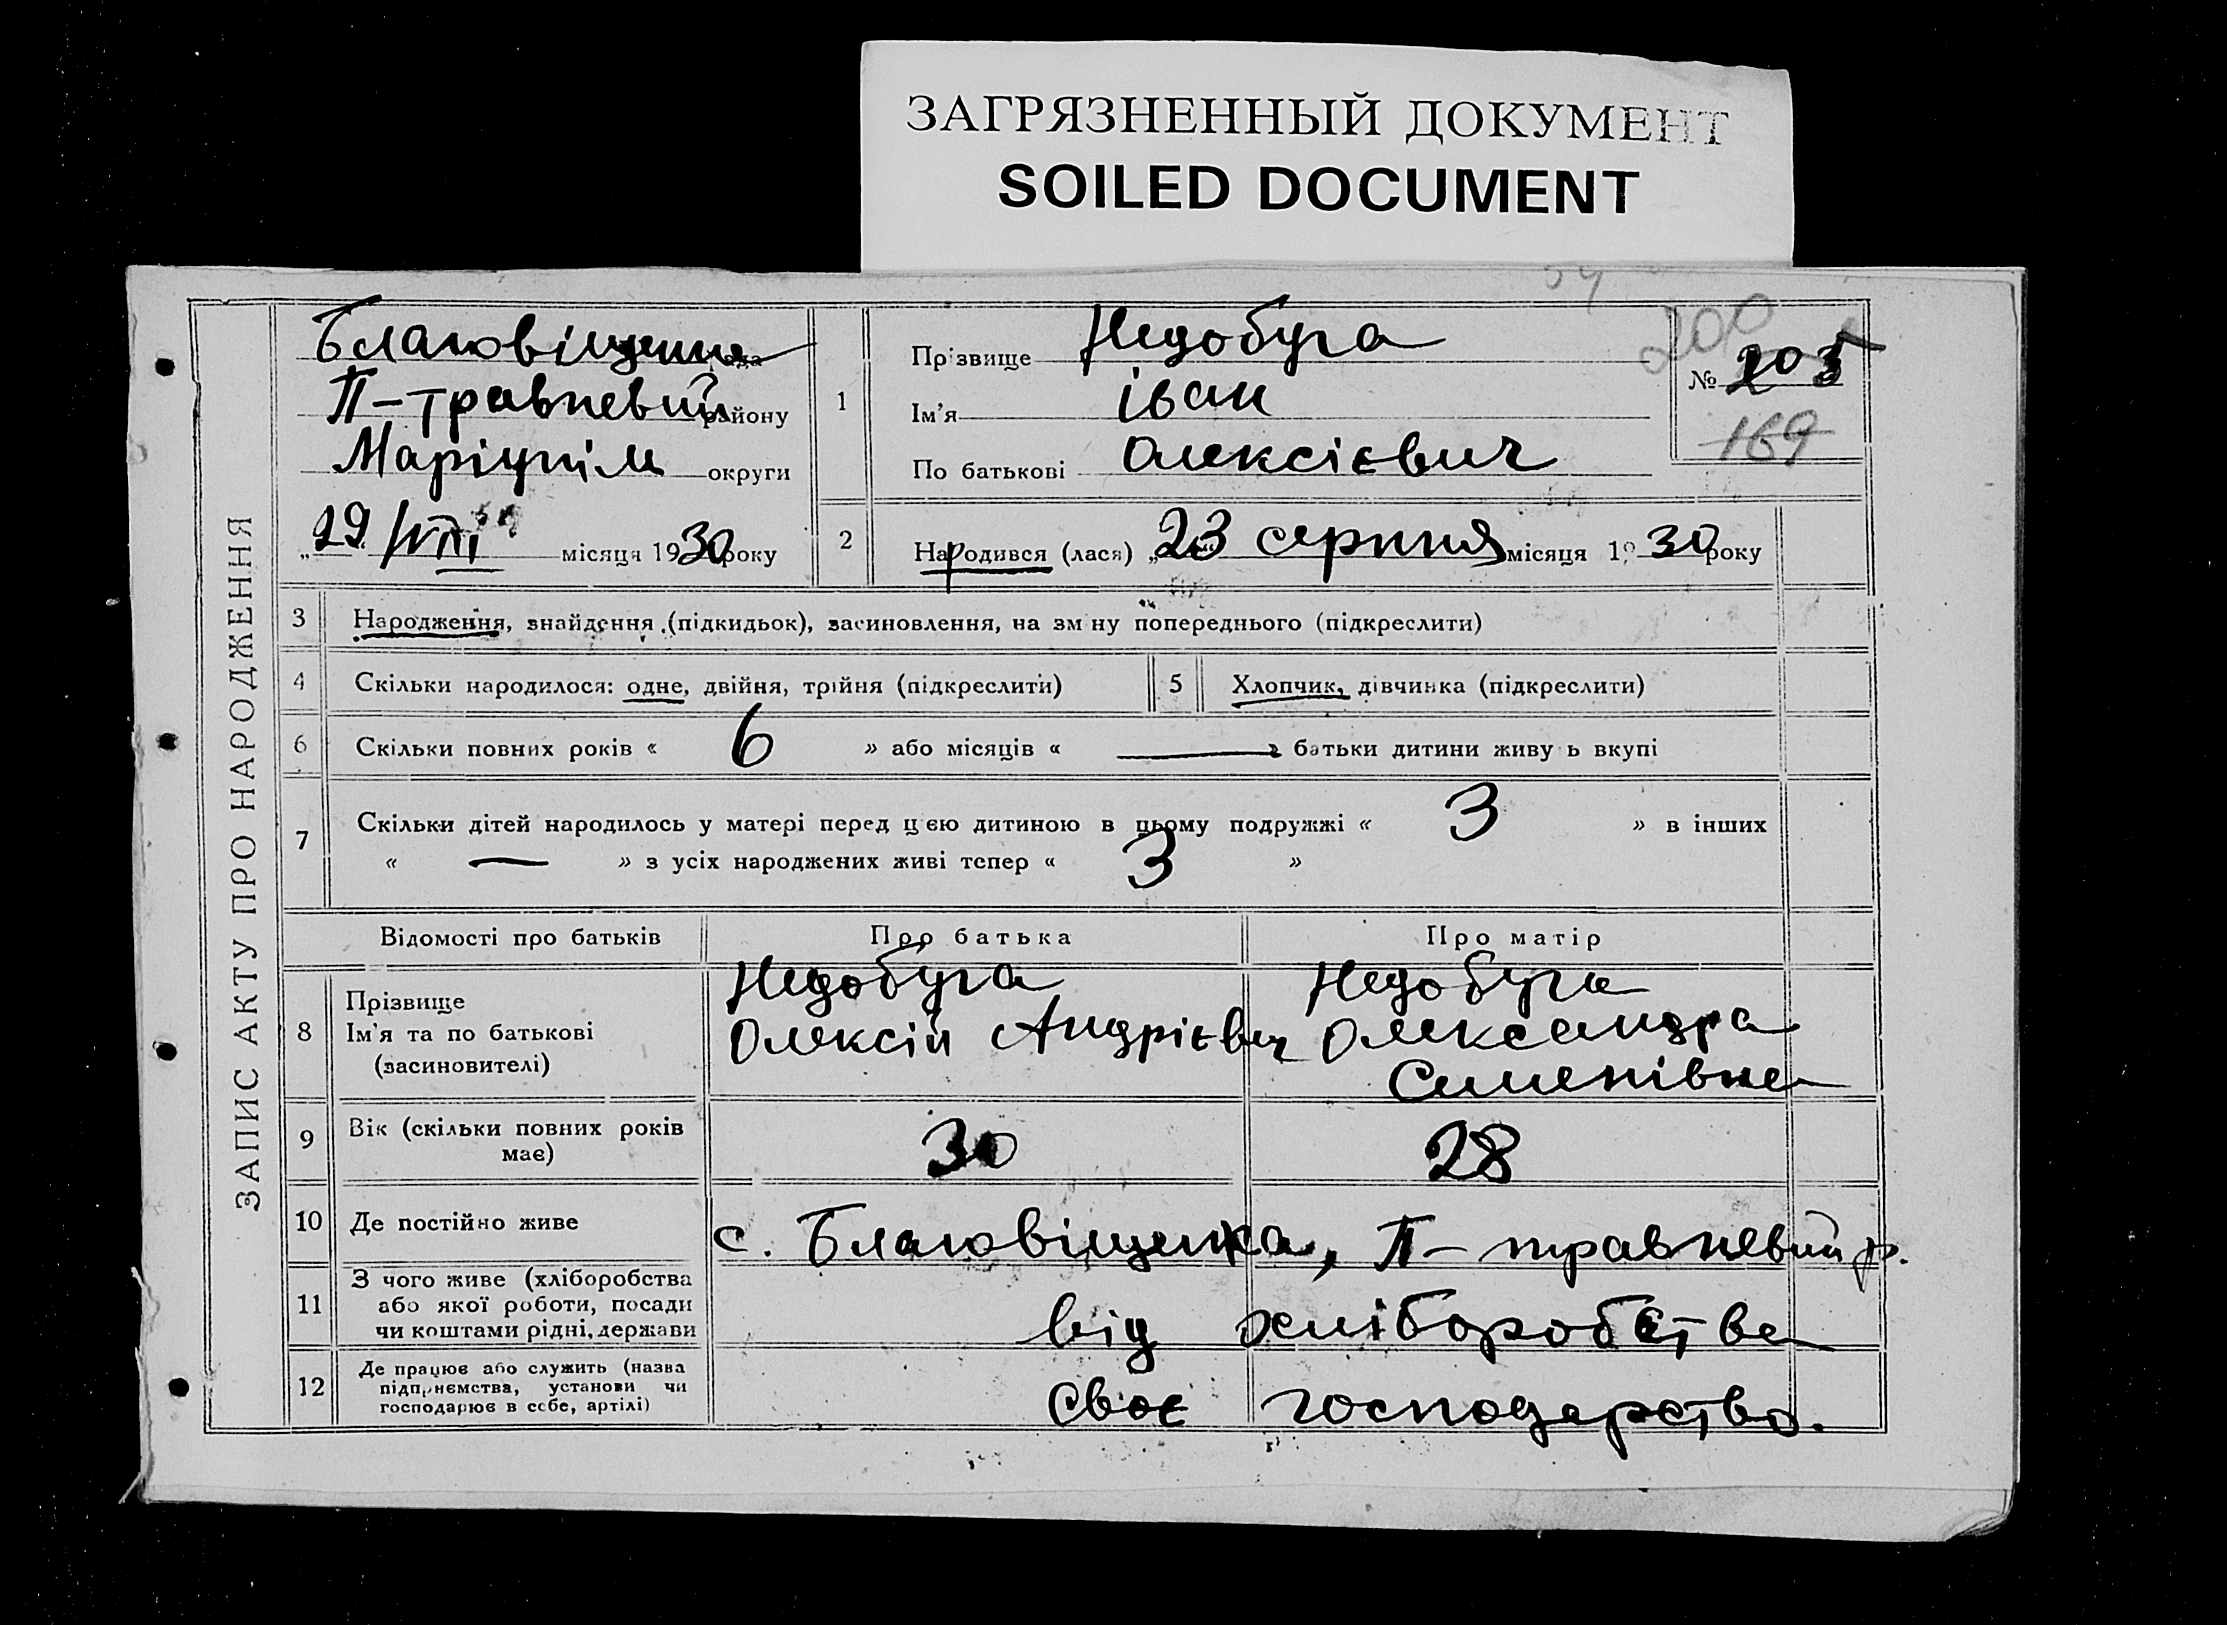 ЗАГРЯЗНЕННЫЙ ДОКУМЕНТ
SOILED DOCUMENT
ЗАПИС АКТУ ПРО НАРОДЖЕННЯ
Благовіщенська рада
П-травневий району
Маріупіль округи
„29 /VIII" місяця 1930 року
1
Прізвище Недобуга
Ім'я Іван
По батькові Олексієвич
200
№ 205
169
2
Народився (лася) „23 серпня місяця 1930 року
3 Народження, знайдення (підкидьок), засиновлення, на зміну попереднього (підкреслити)
4 Скільки народилося: одне, двійня, трійня (підкреслити)
5 Хлопчик, дівчинка (підкреслити)
6 Скільки повних років « 6 » або місяців « — » батьки дитини живуть вкупі
7 Скільки дітей народилось у матері перед цією дитиною в цьому подружжі « 3 » в інших
« — » з усіх народжених живі тепер « 3 »
Відомості про батьків
Про батька
Про матір
8
Прізвище
Ім'я та по батькові
(засиновителі)
Недобуга
Олексій Андрієвич
Недобуга
Олександра
Семенівна
9
Вік (скільки повних років
має)
30
28
10 Де постійно живе
с. Благовіщенка, П-травневий р.
11
З чого живе (хліборобства
або якої роботи, посади
чи коштами рідні, держави
від хліборобства
12
Де працює або служить (назва
підприємства, установи чи
господарює в себе, артілі)
своє господарство.